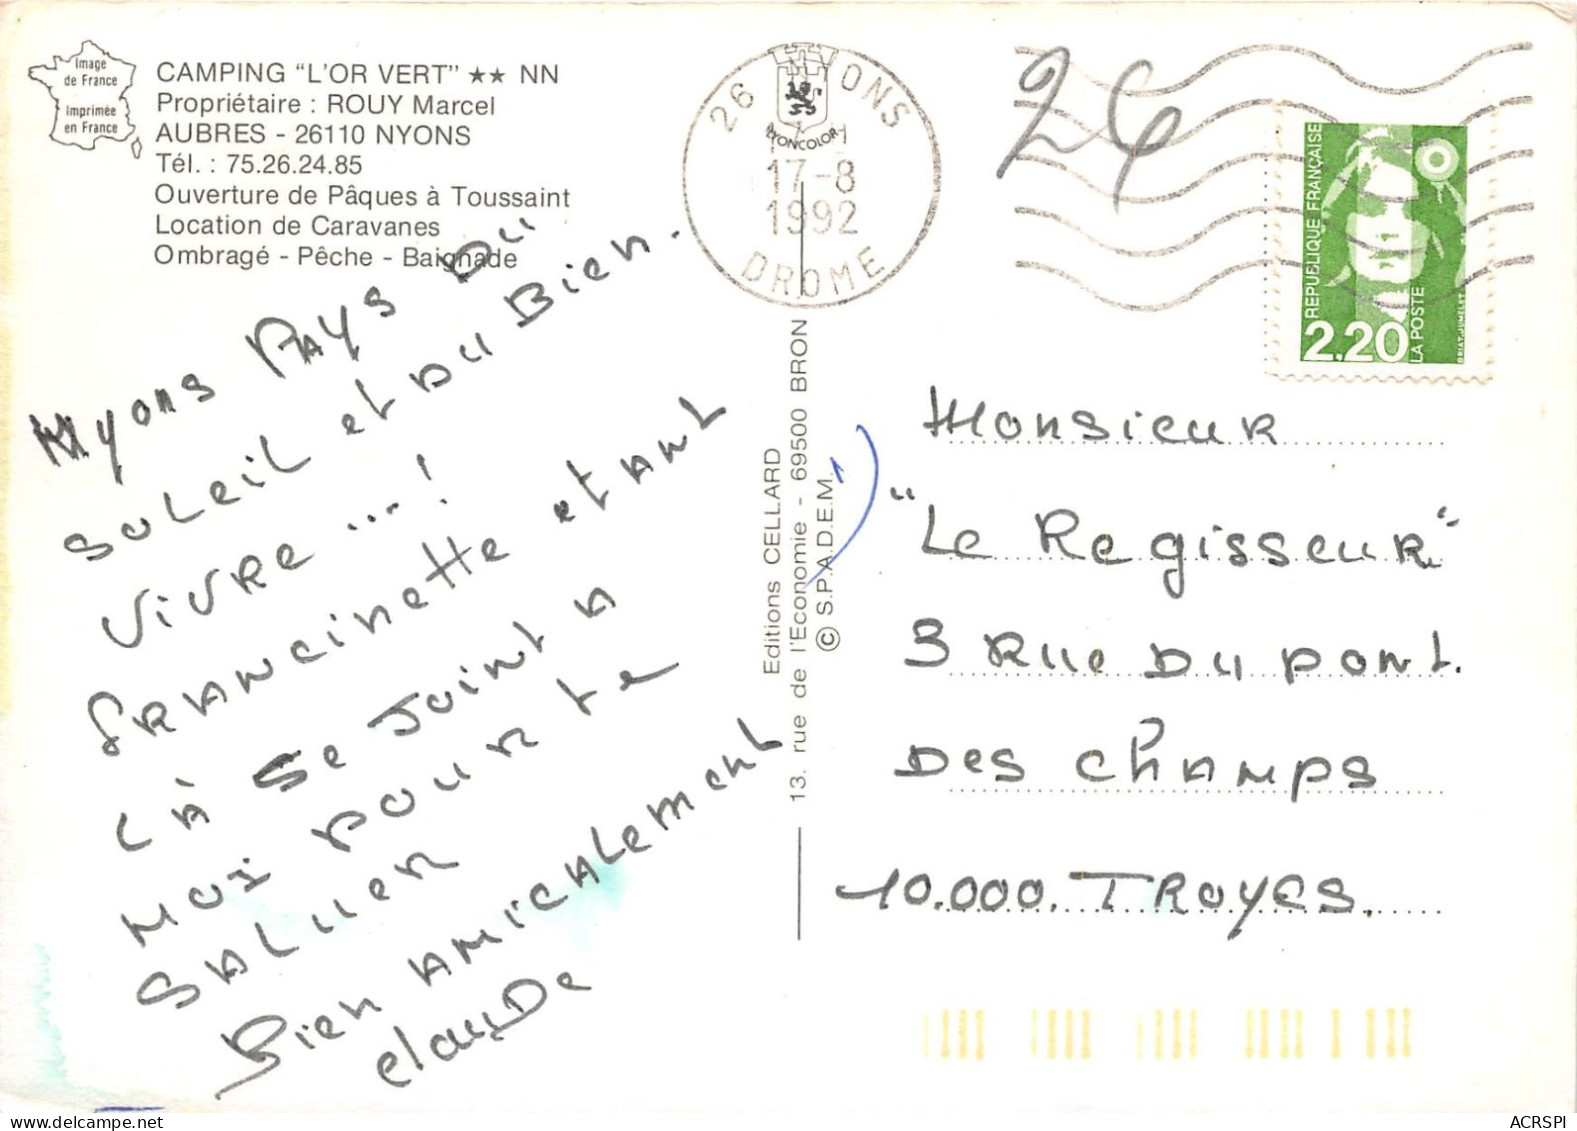 Image
de France
Imprimée
en France
CAMPING "L'OR VERT" ★★ NN
Propriétaire : ROUY Marcel
AUBRES - 26110 NYONS
Tél. : 75.26.24.85
Ouverture de Pâques à Toussaint
Location de Caravanes
Ombragé - Pêche - Baignade
Nyons Pays Du
Soleil et Du Bien.
Vivre ...!
Francinette etant
là se joint A
Moi pour te
Saluer
Bien Amicalement
Claude
Editions CELLARD
13, rue de l'Economie - 69500 BRON
© S.P.A.D.E.M.
LYONCOLOR
26 NYONS
17-8
1992
DROME
24
REPUBLIQUE FRANÇAISE
2.20
LA POSTE
BRIAT-JUMELET
Monsieur
"Le Regisseur"
3 Rue Du Pont.
Des Champs
10.000. TROYES.
ACRSPI